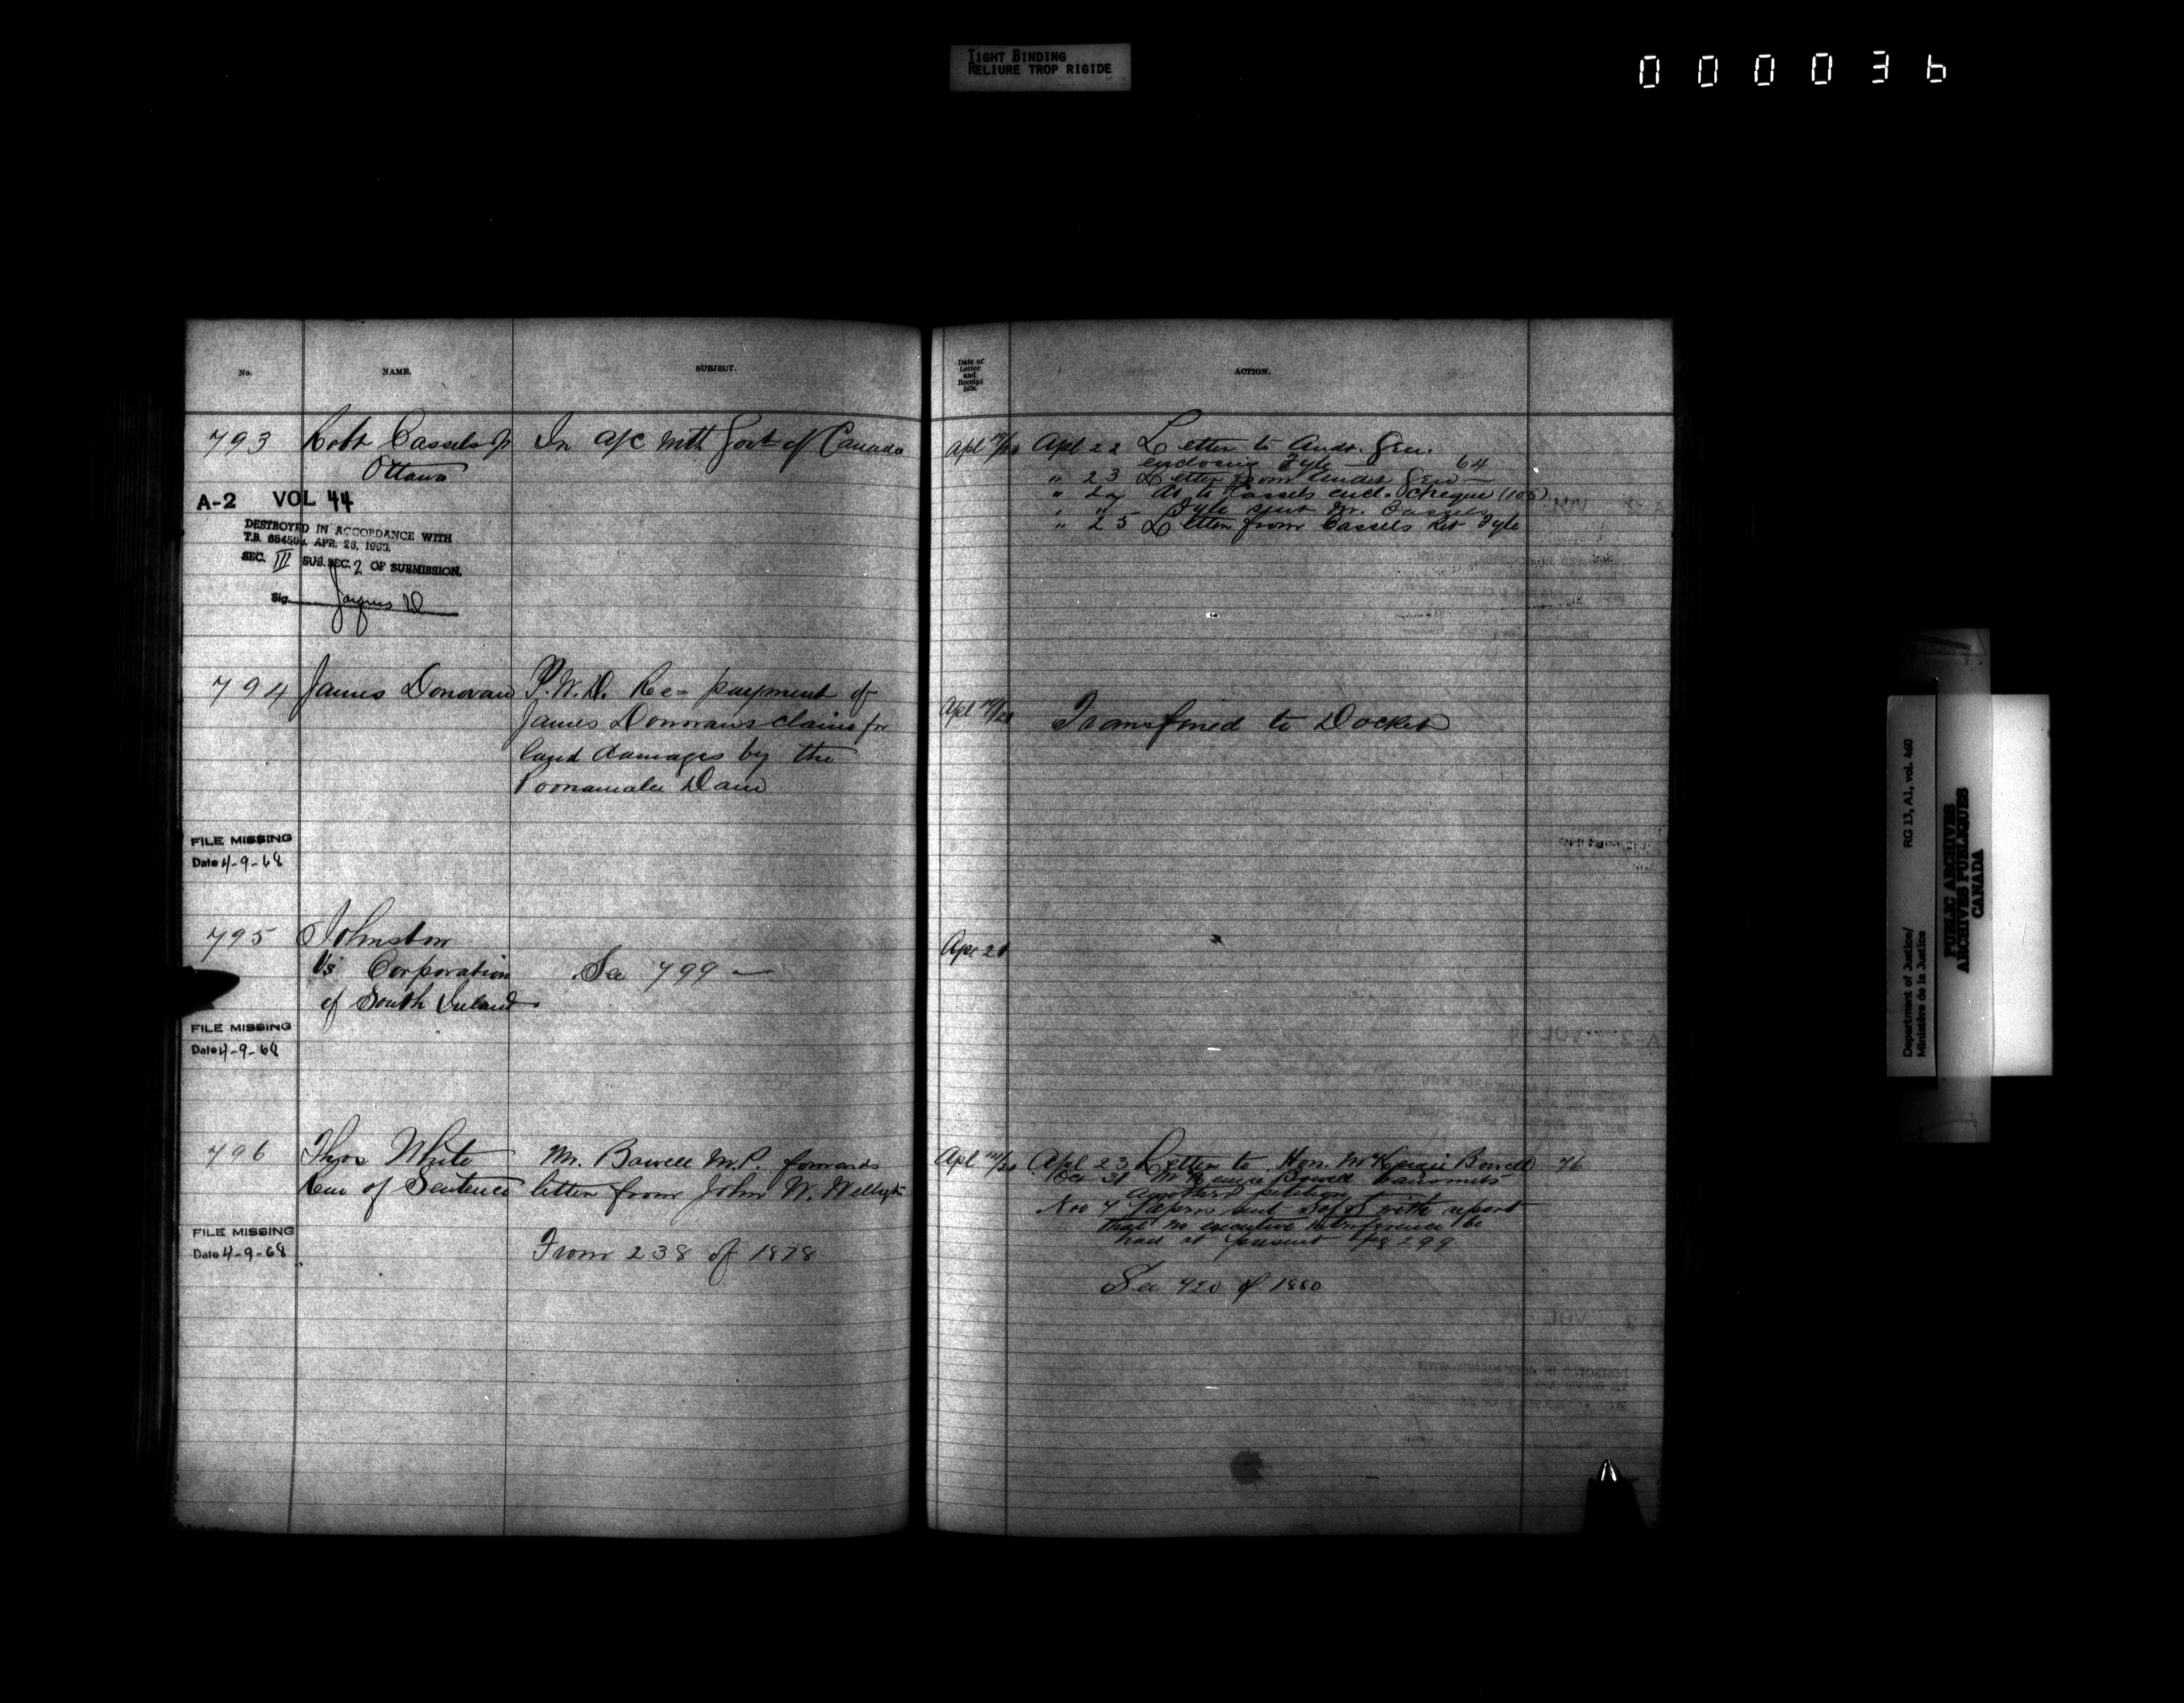 TIGHT BINDING
RELIURE TROP RIGIDE
000036
No.
NAME.
SUBJECT.
Date of
Letter
and
Receipt
ACTION.
793
Robt Cassels Jr
Ottawa
In a/c with Govt of Canada
A-2 VOL 44
DESTROYED IN ACCORDANCE WITH
T.B. APR. 26, 1963.
SEC. III SUB. SEC. 2 OF SUBMISSION.
Sig.
Apl
Apl 22 Letter to Audr. Gen.
enclosing Fyle 64
" 23 Letter from Audr Gen
" 24 to Cassels encl. Cheque (105)
" " Fyle sent Mr. Cassels
" 25 Letter from Cassels Ret Fyle
794
James Donovan
P.W.D. Re= payment of
James Donovan's claim for
land damages by the
Poonamalie Dam
Apl
Transferred to Docket
FILE MISSING
Date 4-9-68
795
Johnston
Vs Corporation
of South
See 799
Apr 21
FILE MISSING
Date 4-9-68
796
Thos White
Rem of Sentence
Mr. Bowell M.P. forwards
letter from John W.
From 238 of 1878
Apl
Apl 23 Letter to Hon. McKenzie Bowell 76
Oct 31 McKenzie Bowell transmits
another petition
Nov 7 Papers sent S of S with report
that no executive interference be
had at present pg 299
See 420 of 1880
FILE MISSING
Date 4-9-68
Department of Justice/
Ministère de la Justice
RG 13, A1, vol. 460
PUBLIC ARCHIVES
ARCHIVES PUBLIQUES
CANADA